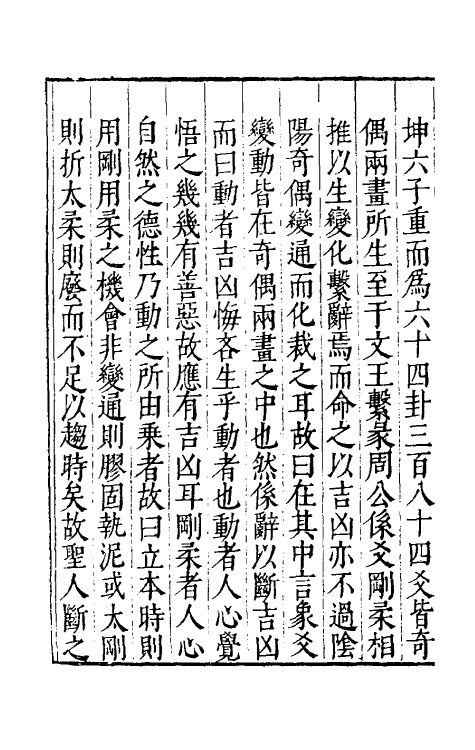 坤六子重而爲六十四卦三百八十四爻皆奇
偶兩畫所生至于文王繫彖周公係爻剛柔相
推以生變化繫辭焉而命之以吉凶亦不過陰
陽奇偶變通而化裁之耳故曰在其中言象爻
變動皆在奇偶兩畫之中也然係辭以斷吉凶
而曰動者吉凶悔吝生乎動者也動者人心覺
悟之幾幾有善惡故應有吉凶耳剛柔者人心
自然之德性乃動之所由乗者故曰立本時則
用剛用柔之機會非變通則膠固執泥或太剛
則折太柔則廢而不足以趨時矣故聖人斷之